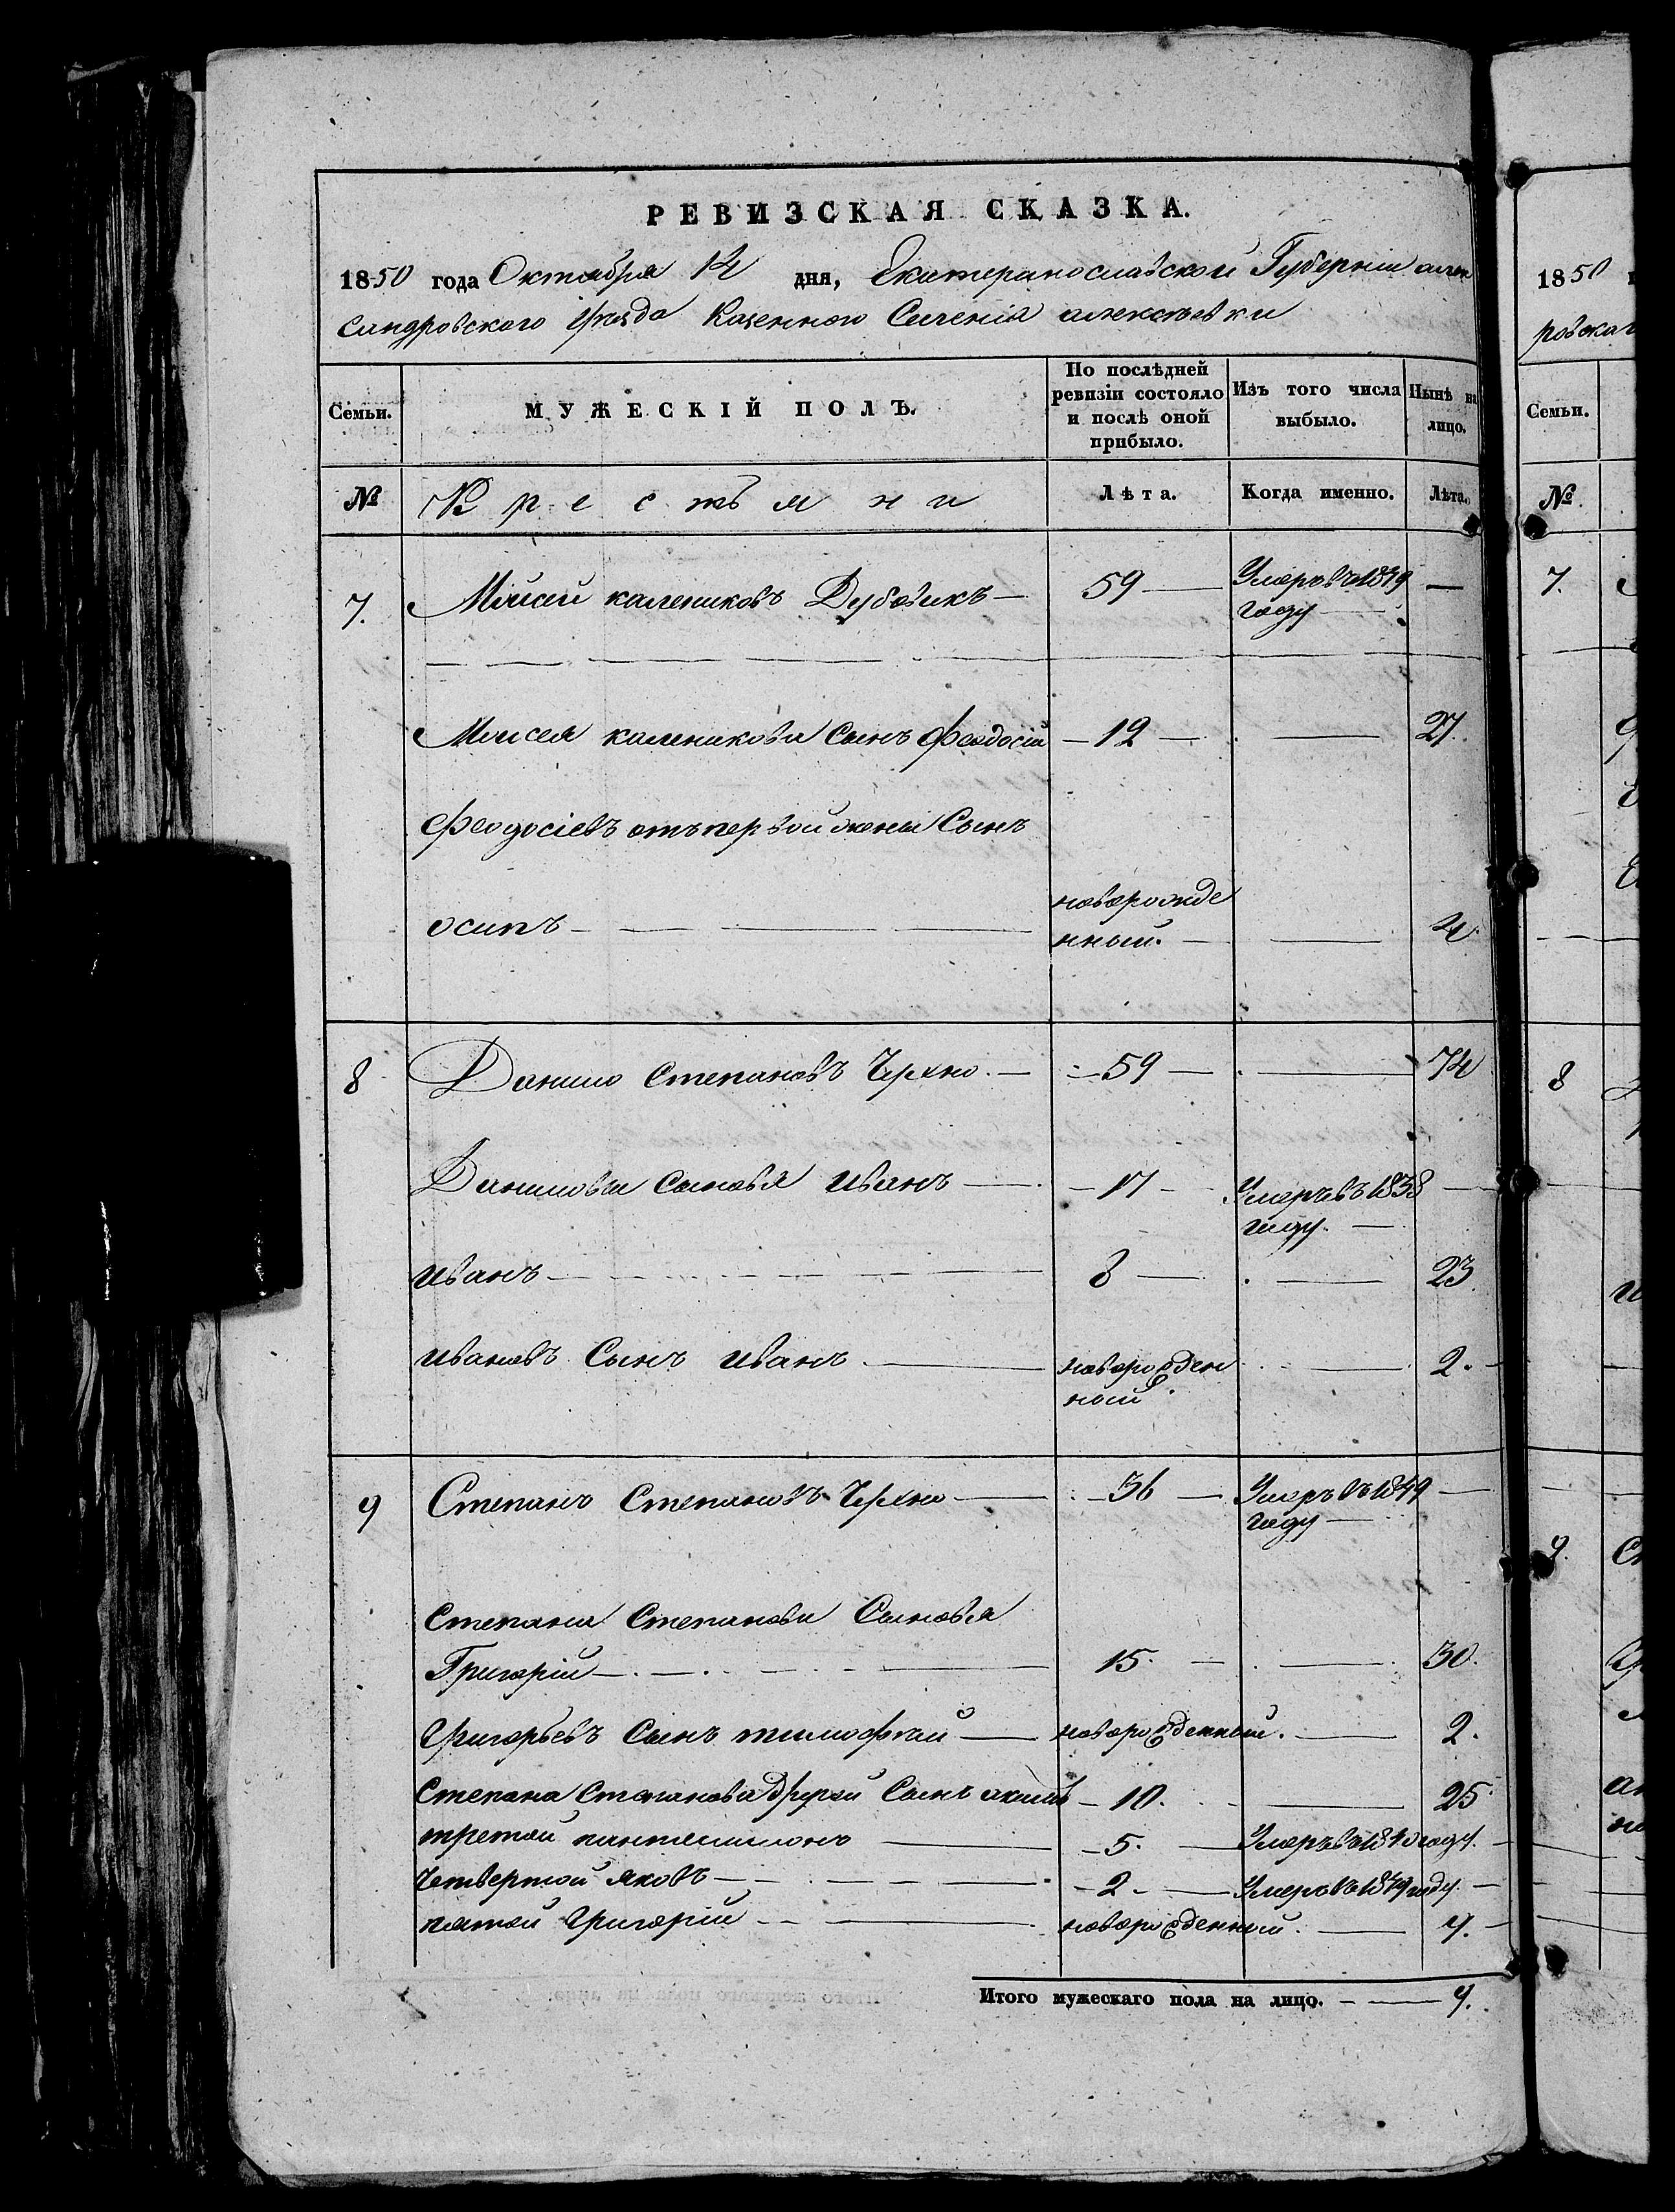 РЕВИЗСКАЯ СКАЗКА.
1850 года Октября 14 дня, Екатеринославской Губерніи алек
сандровского уѣзда Казенного Селенія алексѣевки
Семьи.
МУЖЕСКІЙ ПОЛЪ.
По послѣдней
ревизіи состояло
и послѣ оной
прибыло.
Изъ того числа
выбыло.
Нынѣ на
лицо.
№
Крестьяни
Лѣта.
Когда именно.
Лѣта.
7. Моисей калениковъ Дубовикъ — 59 — Умеръ въ 1849 —
году
Моисея каленикова Сынъ феодосій — 12 — — 27.
феодосіевъ отъ первой жены Сынъ
новорожде
осипъ — нный. — — 4.
8 Данило Степановъ Черхно — 59 — — 74
Даниловы Сыновья иванъ — 17 — Умеръ въ 1838 —
году. —
иванъ — 8 — — 23.
ивановъ Сынъ иванъ — новорожден — 2.
ный.
9 Степанъ Степановъ Черхно — 36 — Умеръ въ 1849 —
году —
Степана Степанова Сыновья
Григорій — 15. — — 30.
Григорьевъ Сынъ тимофей — новорожденный. — 2.
Степана Степанова другой Сынъ акимъ — 10. — 25
третой пантелимонъ — 5. — Умеръ въ 1840 году. —
четвертой яковъ — 2. — Умеръ въ 1849 году. —
пятой Григорій — новорожденный. — 9.
Итого мужескаго пола на лицо. — 9.
1850
ровскаг
Семьи.
№
7.
8
9.